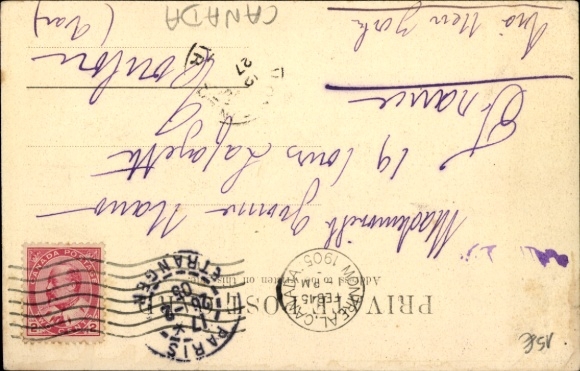 PRIVATE POST CARD
Address to be written on this
CANADA POSTAGE
2 2
MONTREAL, CANADA.
FEB 4
PM
1905
PARIS
ETRANGER
Mademoiselle Yvonne
19 Cours Lafayette
Toulon
(Var)
France
via New York
CANADA